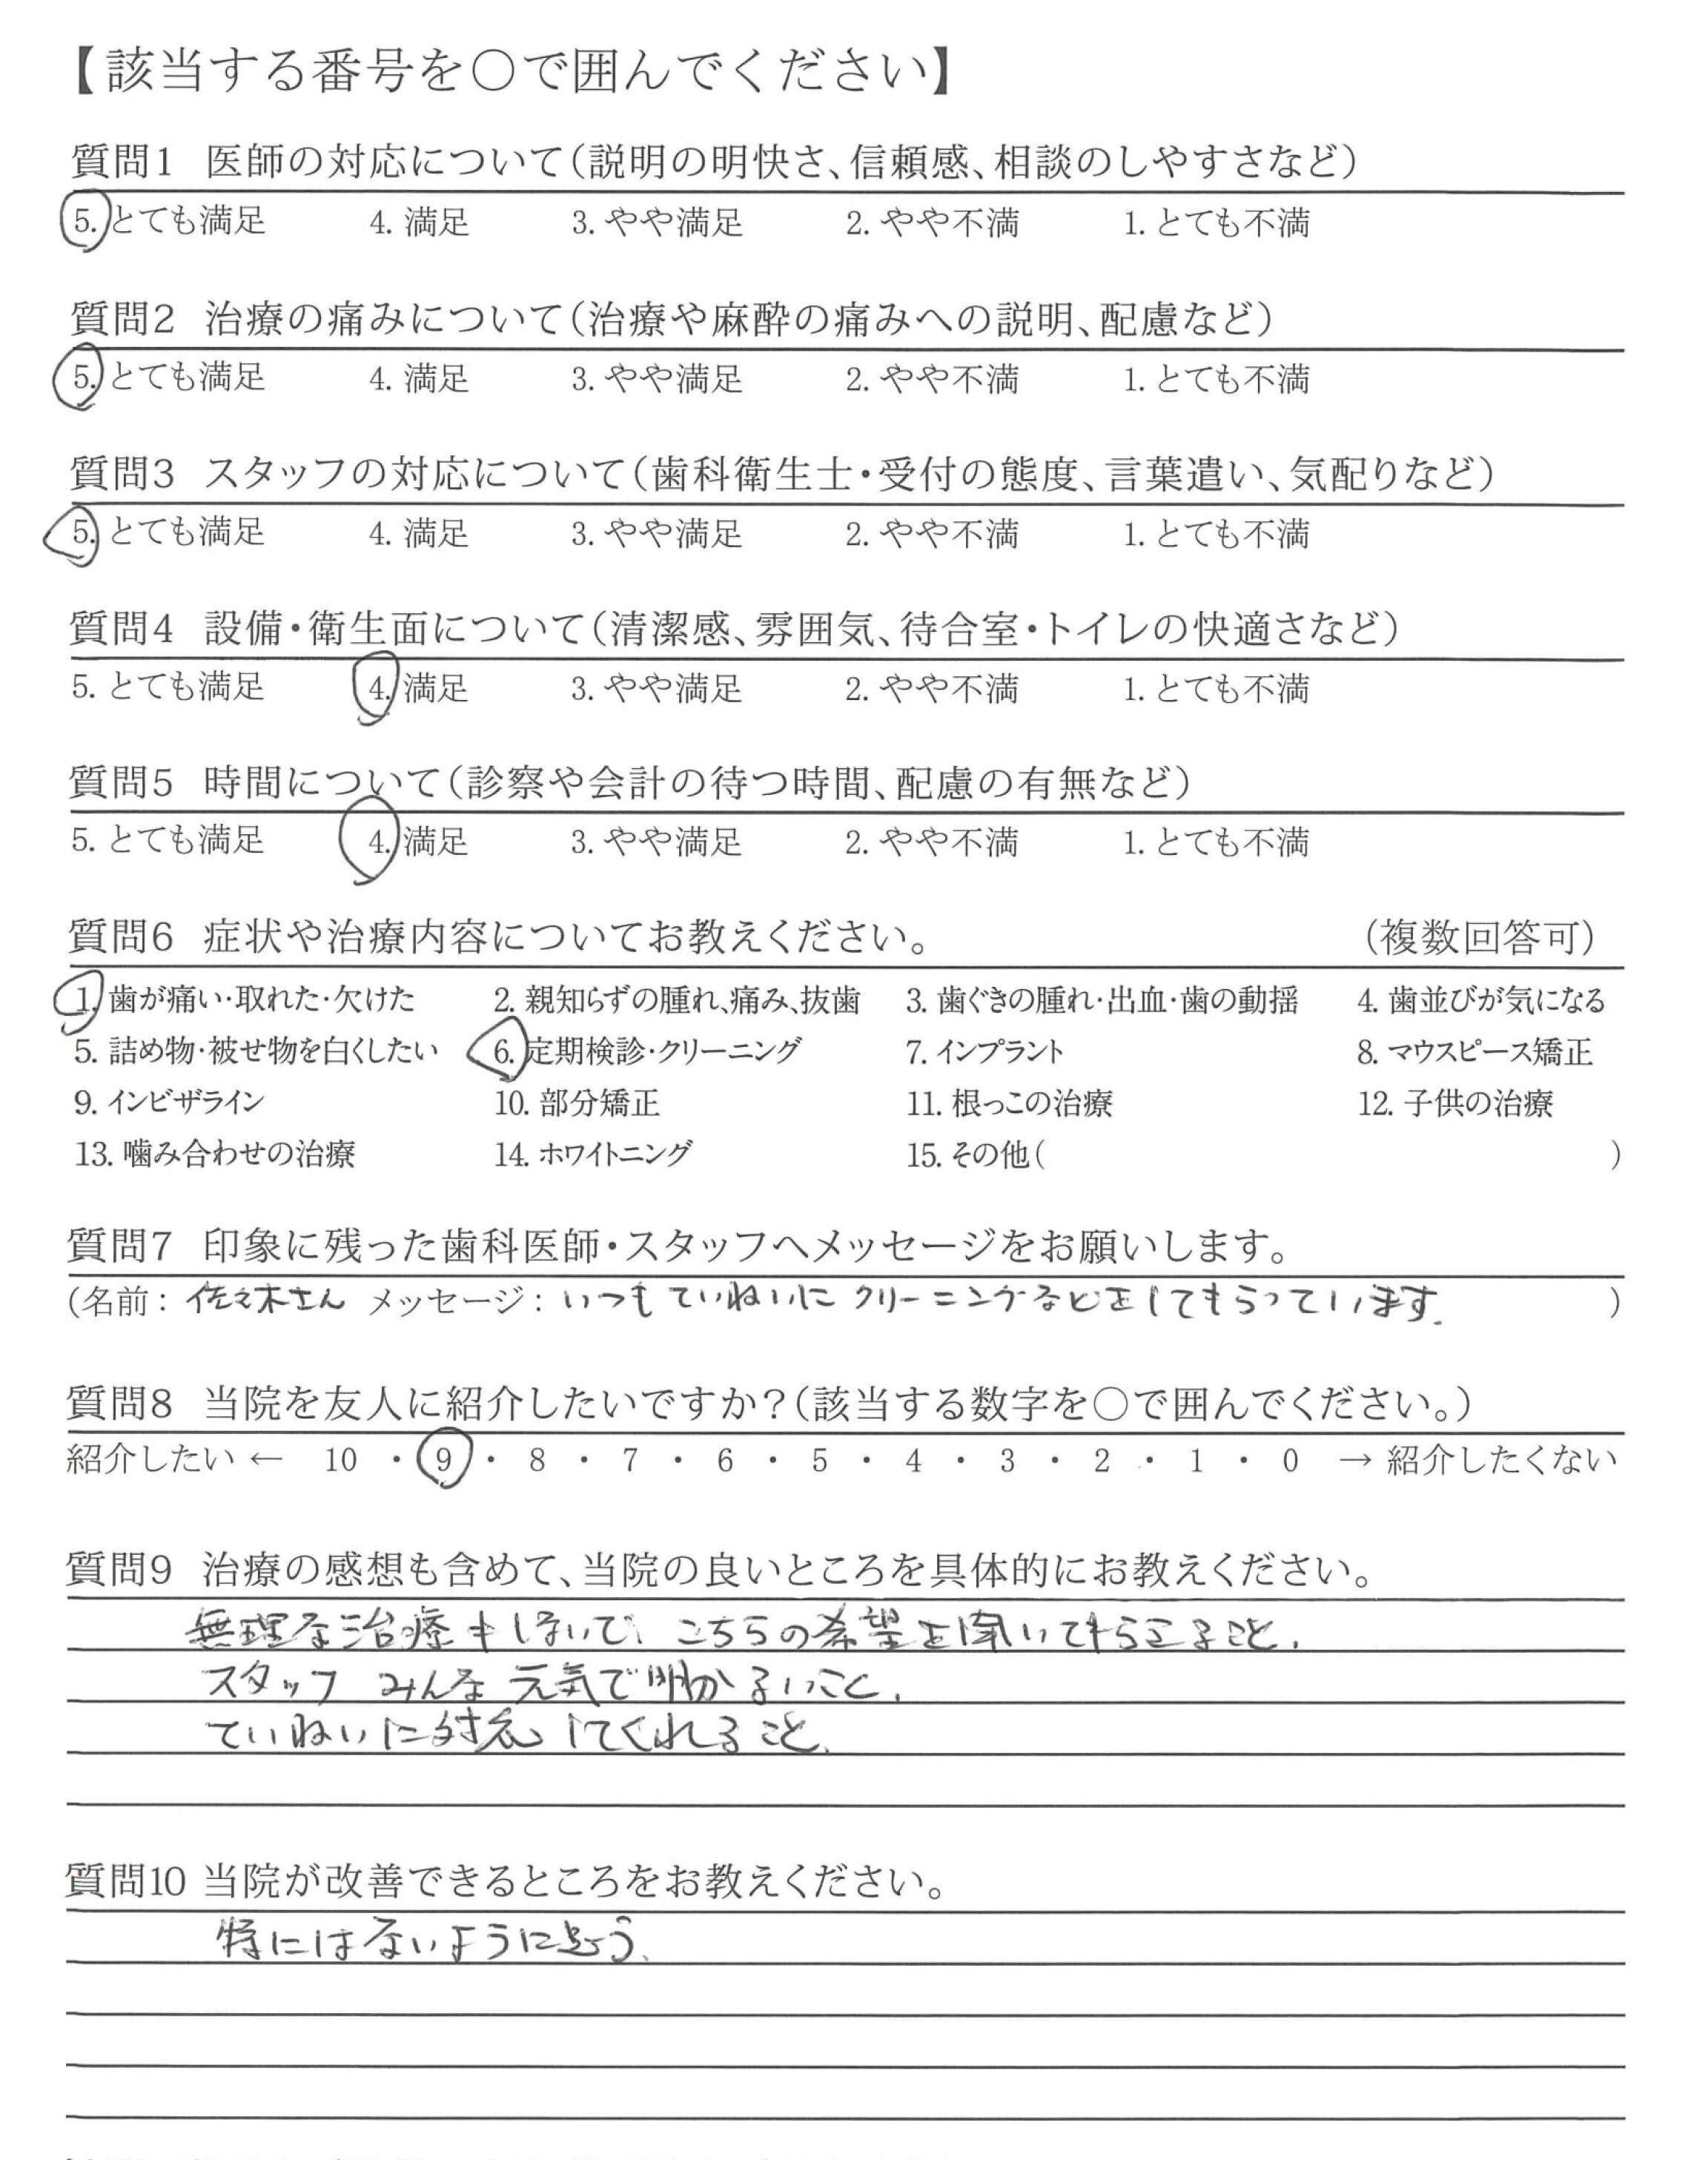 【該当する番号を○で囲んでください】
質問1 医師の対応について（説明の明快さ、信頼感、相談のしやすさなど）
5. とても満足 4. 満足 3. やや満足 2. やや不満 1. とても不満
質問2 治療の痛みについて（治療や麻酔の痛みへの説明、配慮など）
5. とても満足 4. 満足 3. やや満足 2. やや不満 1. とても不満
質問3 スタッフの対応について（歯科衛生士・受付の態度、言葉遣い、気配りなど）
5. とても満足 4. 満足 3. やや満足 2. やや不満 1. とても不満
質問4 設備・衛生面について（清潔感、雰囲気、待合室・トイレの快適さなど）
5. とても満足 4. 満足 3. やや満足 2. やや不満 1. とても不満
質問5 時間について（診察や会計の待つ時間、配慮の有無など）
5. とても満足 4. 満足 3. やや満足 2. やや不満 1. とても不満
質問6 症状や治療内容についてお教えください。 （複数回答可）
1. 歯が痛い・取れた・欠けた 2. 親知らずの腫れ、痛み、抜歯 3. 歯ぐきの腫れ・出血・歯の動揺 4. 歯並びが気になる
5. 詰め物・被せ物を白くしたい 6. 定期検診・クリーニング 7. インプラント 8. マウスピース矯正
9. インビザライン 10. 部分矯正 11. 根っこの治療 12. 子供の治療
13. 噛み合わせの治療 14. ホワイトニング 15. その他（ ）
質問7 印象に残った歯科医師・スタッフへメッセージをお願いします。
（名前： 佐々木さん メッセージ： いつもていねいにクリーニングなどをしてもらっています. ）
質問8 当院を友人に紹介したいですか？（該当する数字を○で囲んでください。）
紹介したい ← 10 ・ 9 ・ 8 ・ 7 ・ 6 ・ 5 ・ 4 ・ 3 ・ 2 ・ 1 ・ 0 → 紹介したくない
質問9 治療の感想も含めて、当院の良いところを具体的にお教えください。
無理な治療をしないで、こちらの希望を聞いてもらえること.
スタッフ みんな元気で明かるいこと.
ていねいに対応してくれること.
質問10 当院が改善できるところをお教えください。
特にはないように思う.